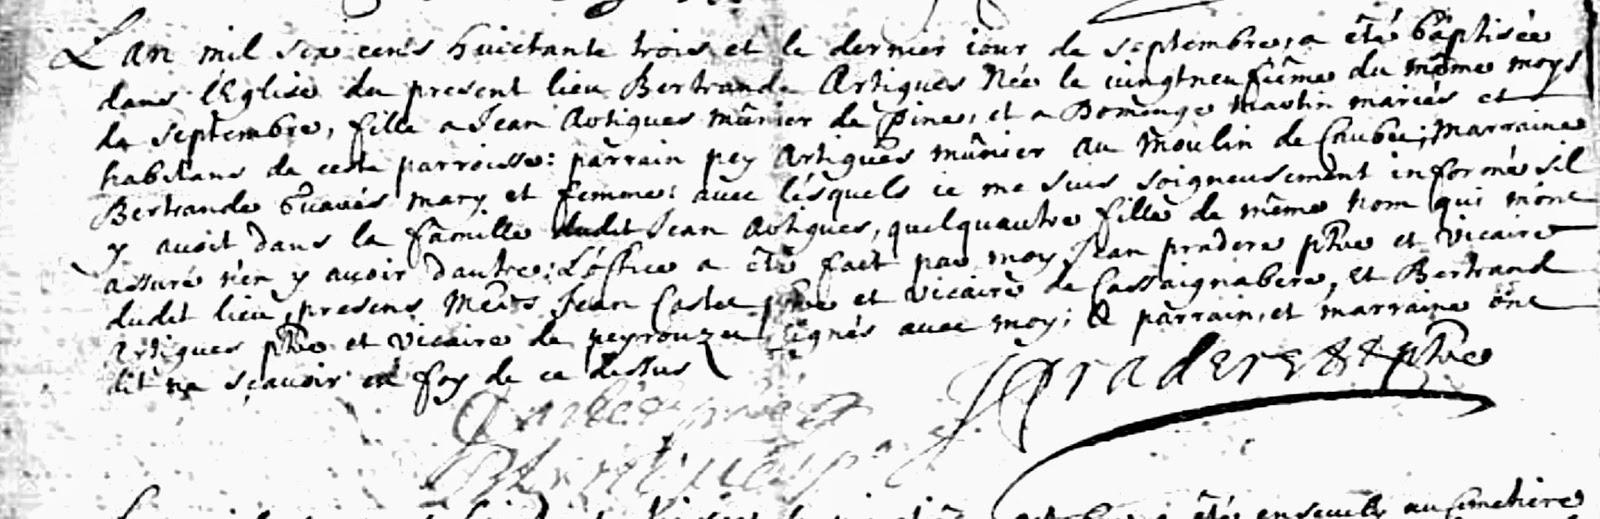 Lan mil six cens huictante trois et le dernier iour de septembre, a êté baptisée
dans lEglise du present lieu Bertrande Artigues Née le vingtneufiême du même moys
de septembre, fille a Jean Artigues mûnier de Pine, et a Domenge Martin mariés et
habitans de ceste parroisse: parrain pey Artigues mûnier au moulin de Caubere; marraine
Bertrande mary et femme: avec lésquels ie me suis soigneusement informé sil
y avoit dans la famille dudit Jean Artigues, quelquautre fille de même nom qui mont
assuré n'en y avoir dautre; Loffice a êté fait par moy Jean pradere ptre et vicaire
dudit lieu, presens Jean Castet ptre et vicaire de Cassaignabere, et Bertrand
Artigues ptre et vicaire de peyrouzet signés avec moy; & parrain, et marraine ont
dit ne sçavoir en foy de ce dessus
Pradere ptre
a êté enseveli au Cimetiere